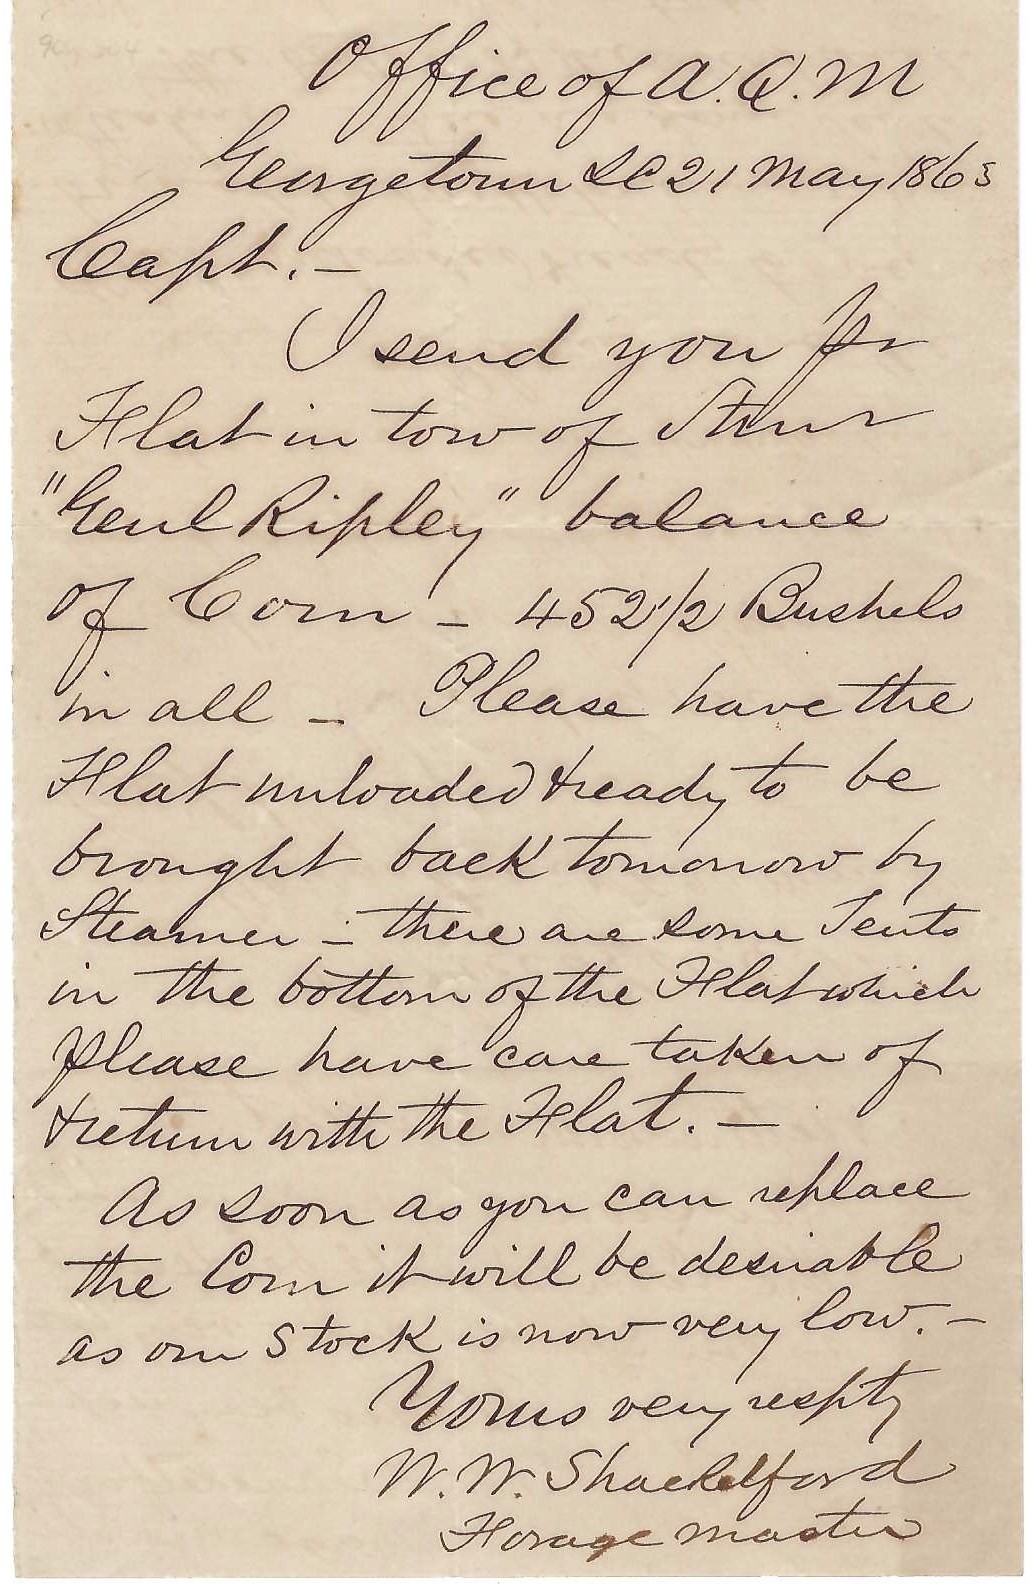 Office of A.Q.M
Georgetown SC 21 May 1863
Capt. –
I send you Pr
Flat in tow of Stmr
"Genl Ripley" balance
of Corn – 452 1/2 Bushels
in all – Please have the
Flat unloaded & ready to be
brought back tomorrow by
Steamer – there are some Tents
in the bottom of the Flat which
please have care taken of
& return with the Flat. –
As soon as you can replace
the Corn it will be desirable
as our Stock is now very low. –
Yours very respty
W. W. Shackelford
Forage master